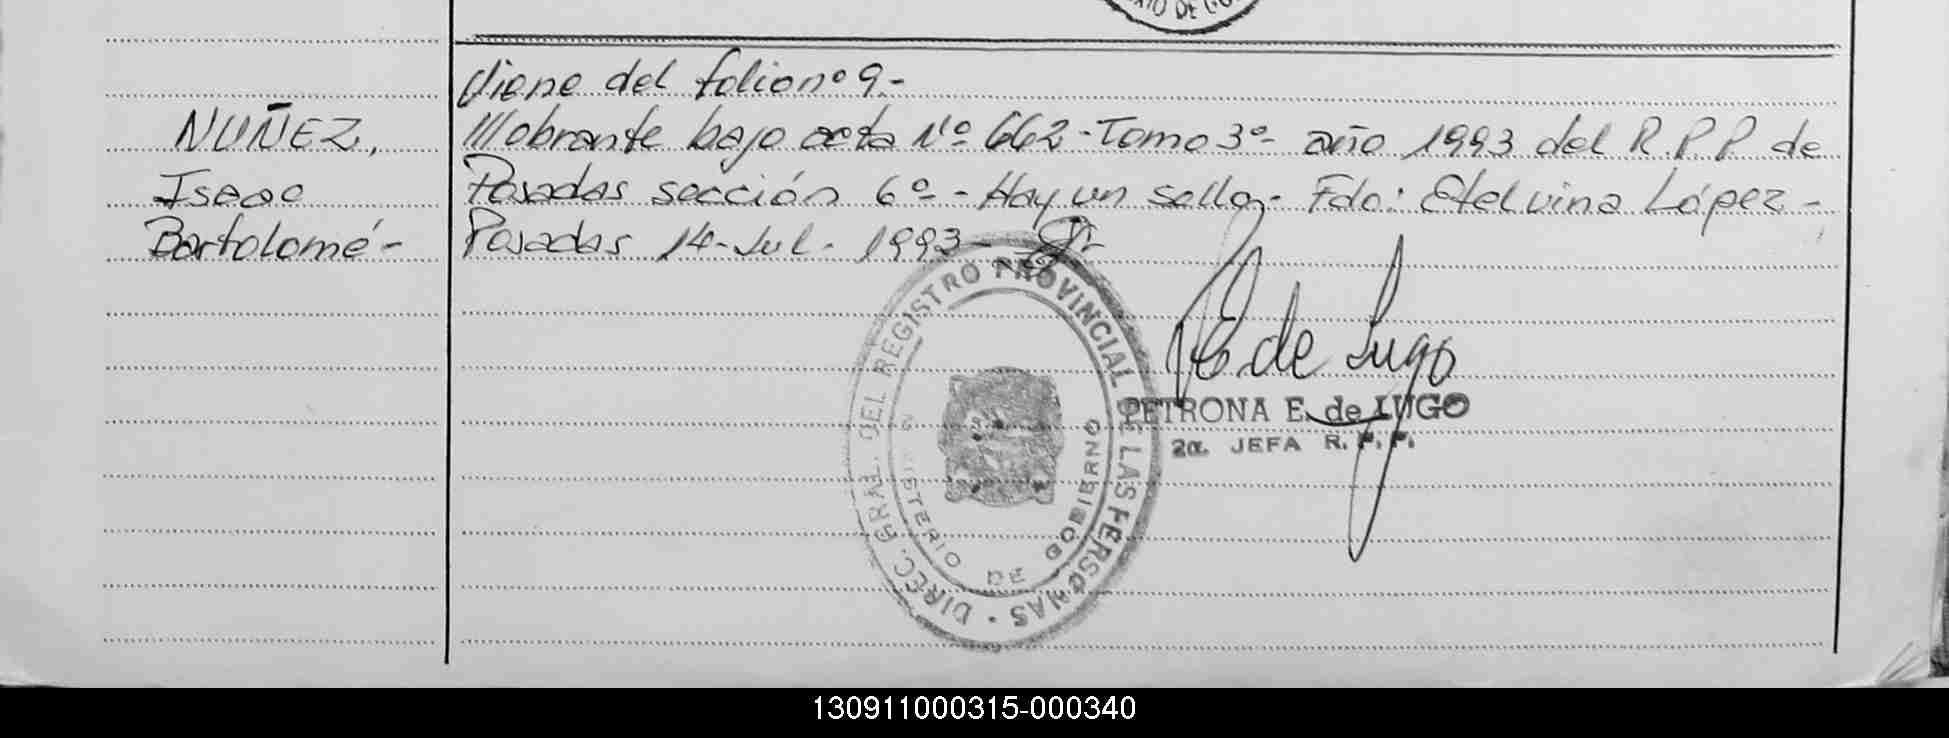 Viene del folio nº 9.-
NUÑEZ, ///obrante bajo acta Nº 662 - Tomo 3º - año 1993 del R.P.P. de
Isaac Posadas sección 6º - Hay un sello.- Fdo: Etelvina López -
Bartolomé - Posadas 14 - Jul - 1993 -
E de Lugo
PETRONA E. de LUGO
2a. JEFA R. P. P.
DIREC. GRAL. DEL REGISTRO PROVINCIAL DE LAS PERSONAS
MINISTERIO DE GOBIERNO
130911000315-000340